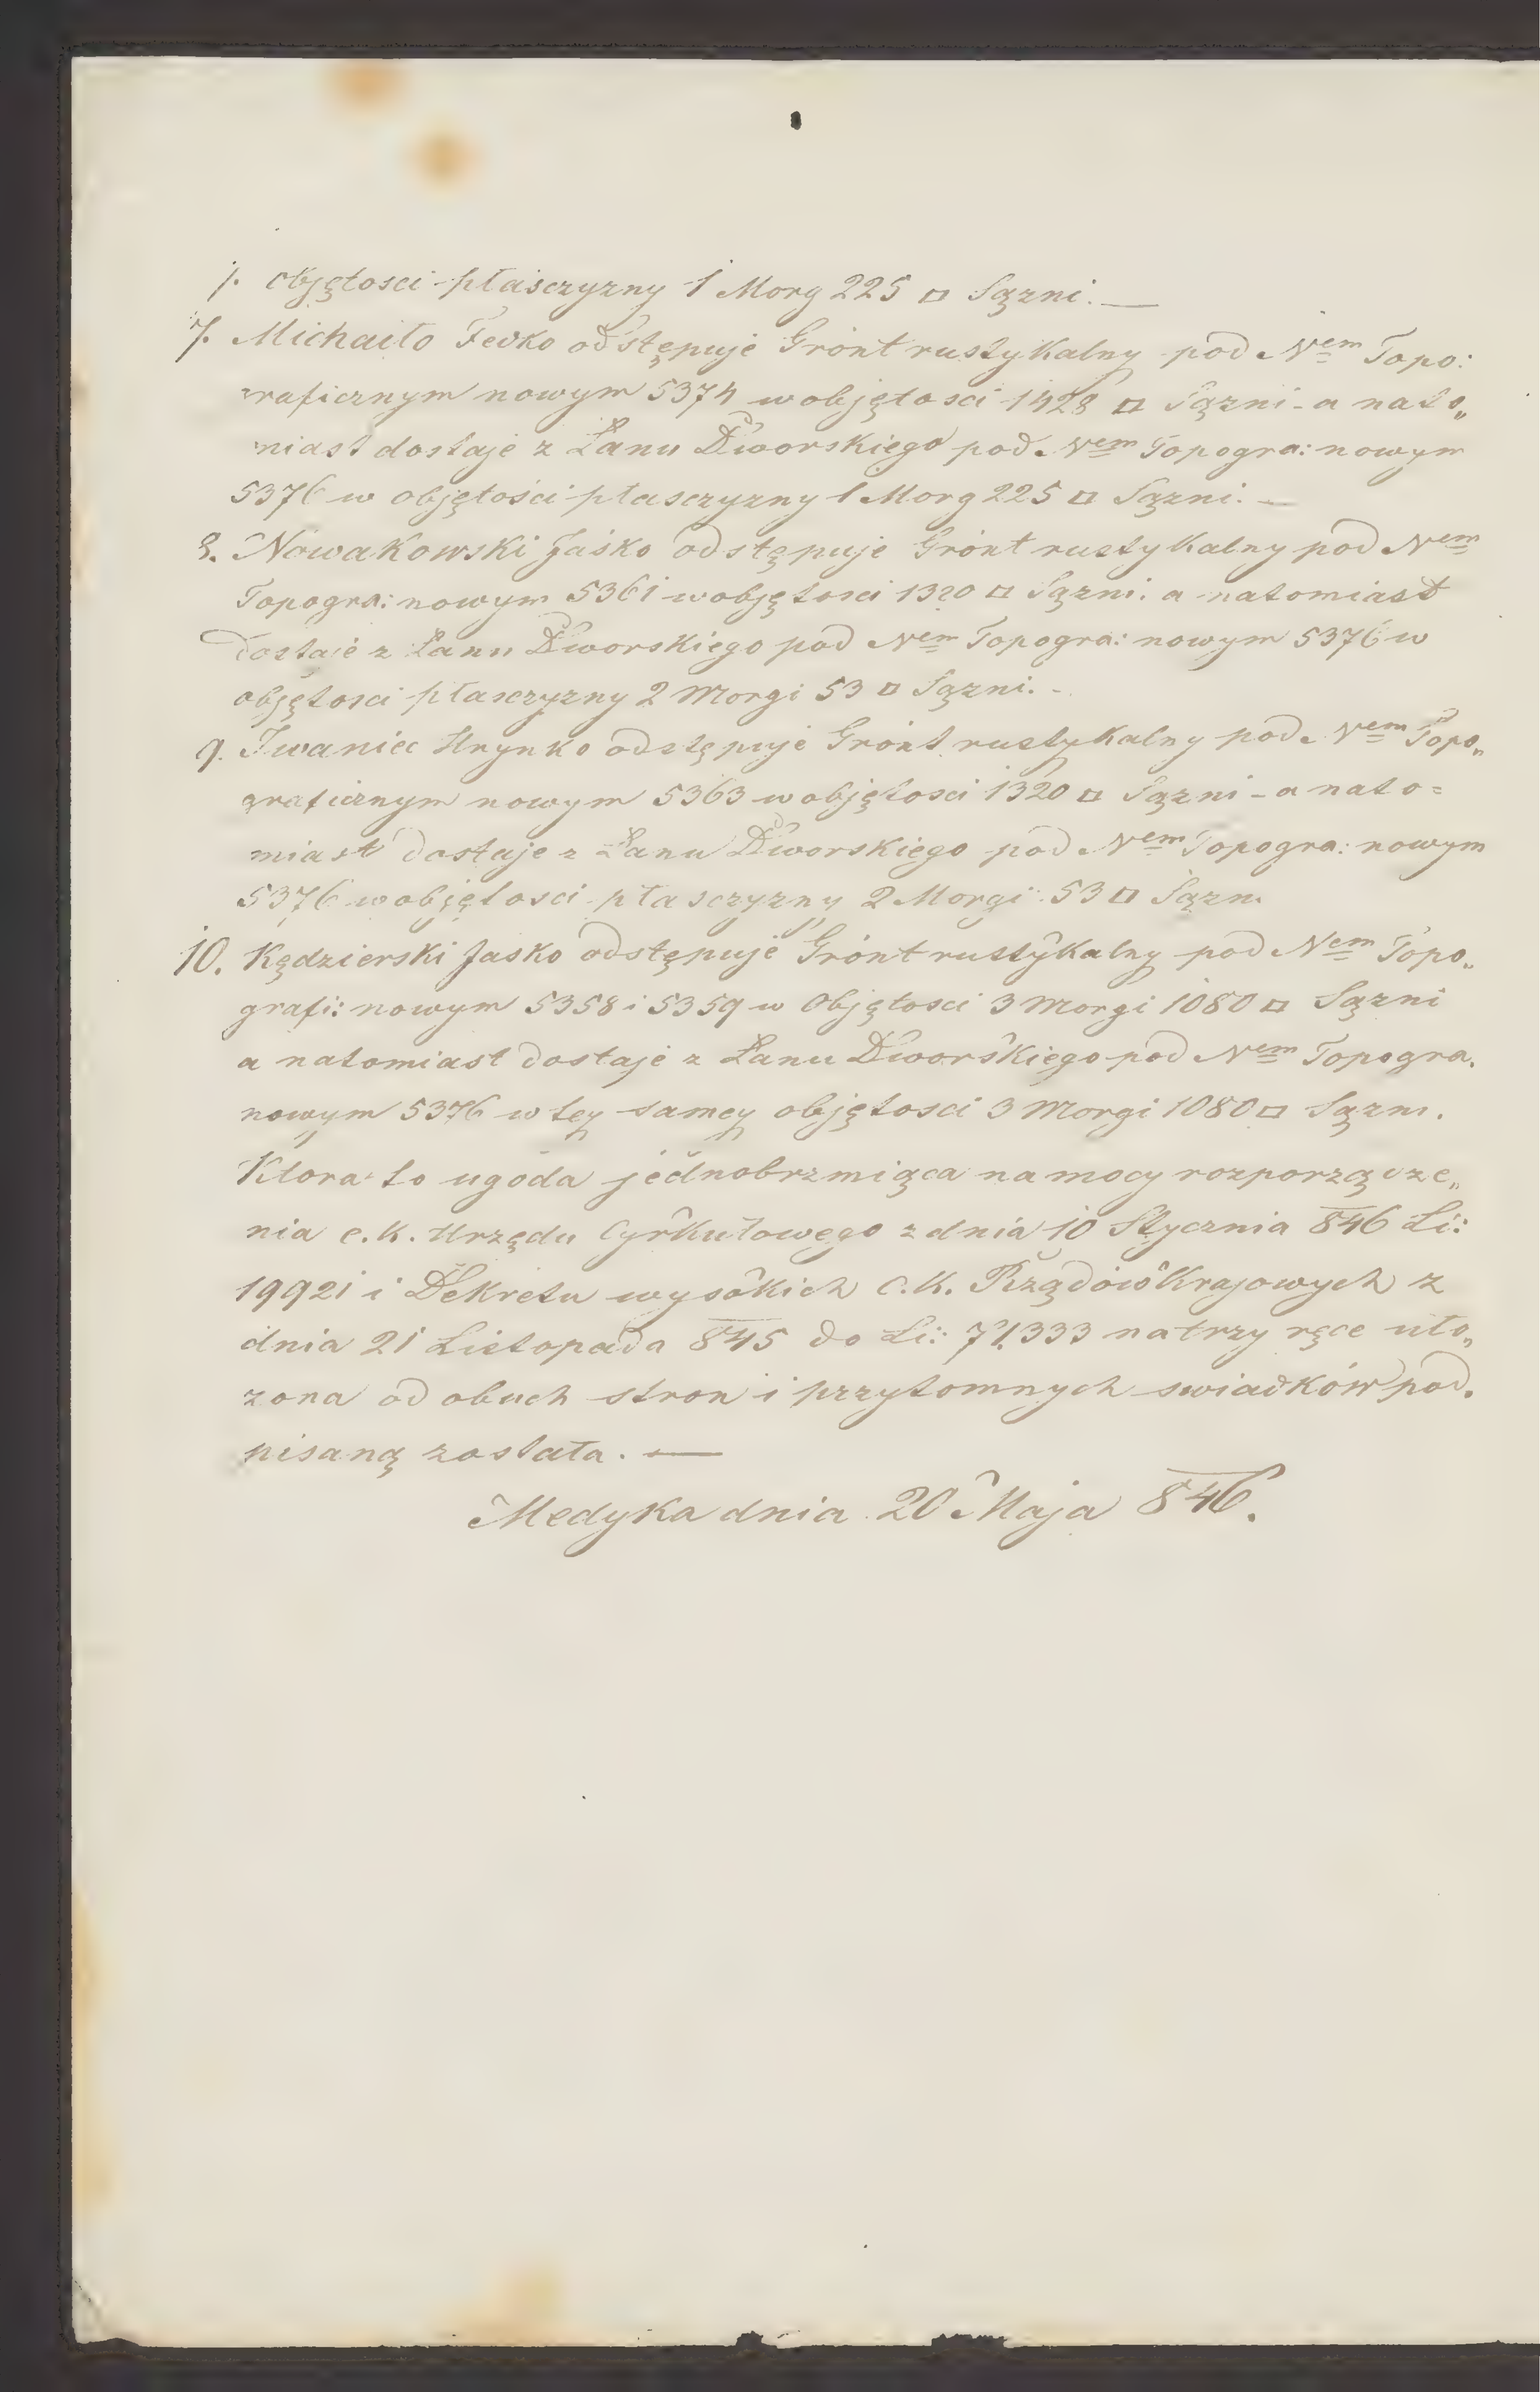 objętosci płasczyzny 1 Morg 225 □ Sązni. —
7. Michaiło Fedko odstępuje Gront rustykalny pod Nem Topo:
graficznym nowym 5374 w objętosci 1428 □ Sązni - a nato„
miast dostaje z Łanu Dworskiego pod Nem Topogra: nowym
5376 w objętości płasczyzny 1 Morg 225 □ Sązni. —
8. Nowakowski Jaśko odstępuje Gront rustykalny pod Nem
Topogra: nowym 5361 w objętosci 1320 □ Sązni. a natomiast
dostaje z Łanu Dworskiego pod Nem Topogra: nowym 5376 w
objętosci płasczyzny 2 Morgi 53 □ Sązni. -
9. Iwaniec Hrynko odstępuje Gront rustykalny pod Nem Topo„
graficznym nowym 5363 w objętosci 1320 □ Sązni - a nato=
miast dostaje z Łanu Dworskiego pod Nem Topogra: nowym
5376 w objętosci płasczyzny 2 Morgi 53 □ Sązn.
10. Kędzierski Jasko odstępuje Gront rustykalny pod Nem Topo„
grafi: nowym 5358 i 5359 w Objętosci 3 Morgi 1080 □ Sązni
a natomiast dostaje z Łanu Dworskiego pod Nem Topogra.
nowym 5376 w tey samey objętosci 3 Morgi 1080 □ Sązni.
Ktora to ugoda jednobrzmiąca na mocy rozporządze„
nia c. k. Urzędu Cyrkułowego z dnia 10 Stycznia 846 Li:
19921 i Dekretu wysokich C. K. Rządów Krajowych z
dnia 21 Listopada 845 do Li: 71.333 na trzy ręce uło„
zona od obuch stron i przytomnych swiadków pod.
pisaną została. —
Medyka dnia 20 Maja 846.